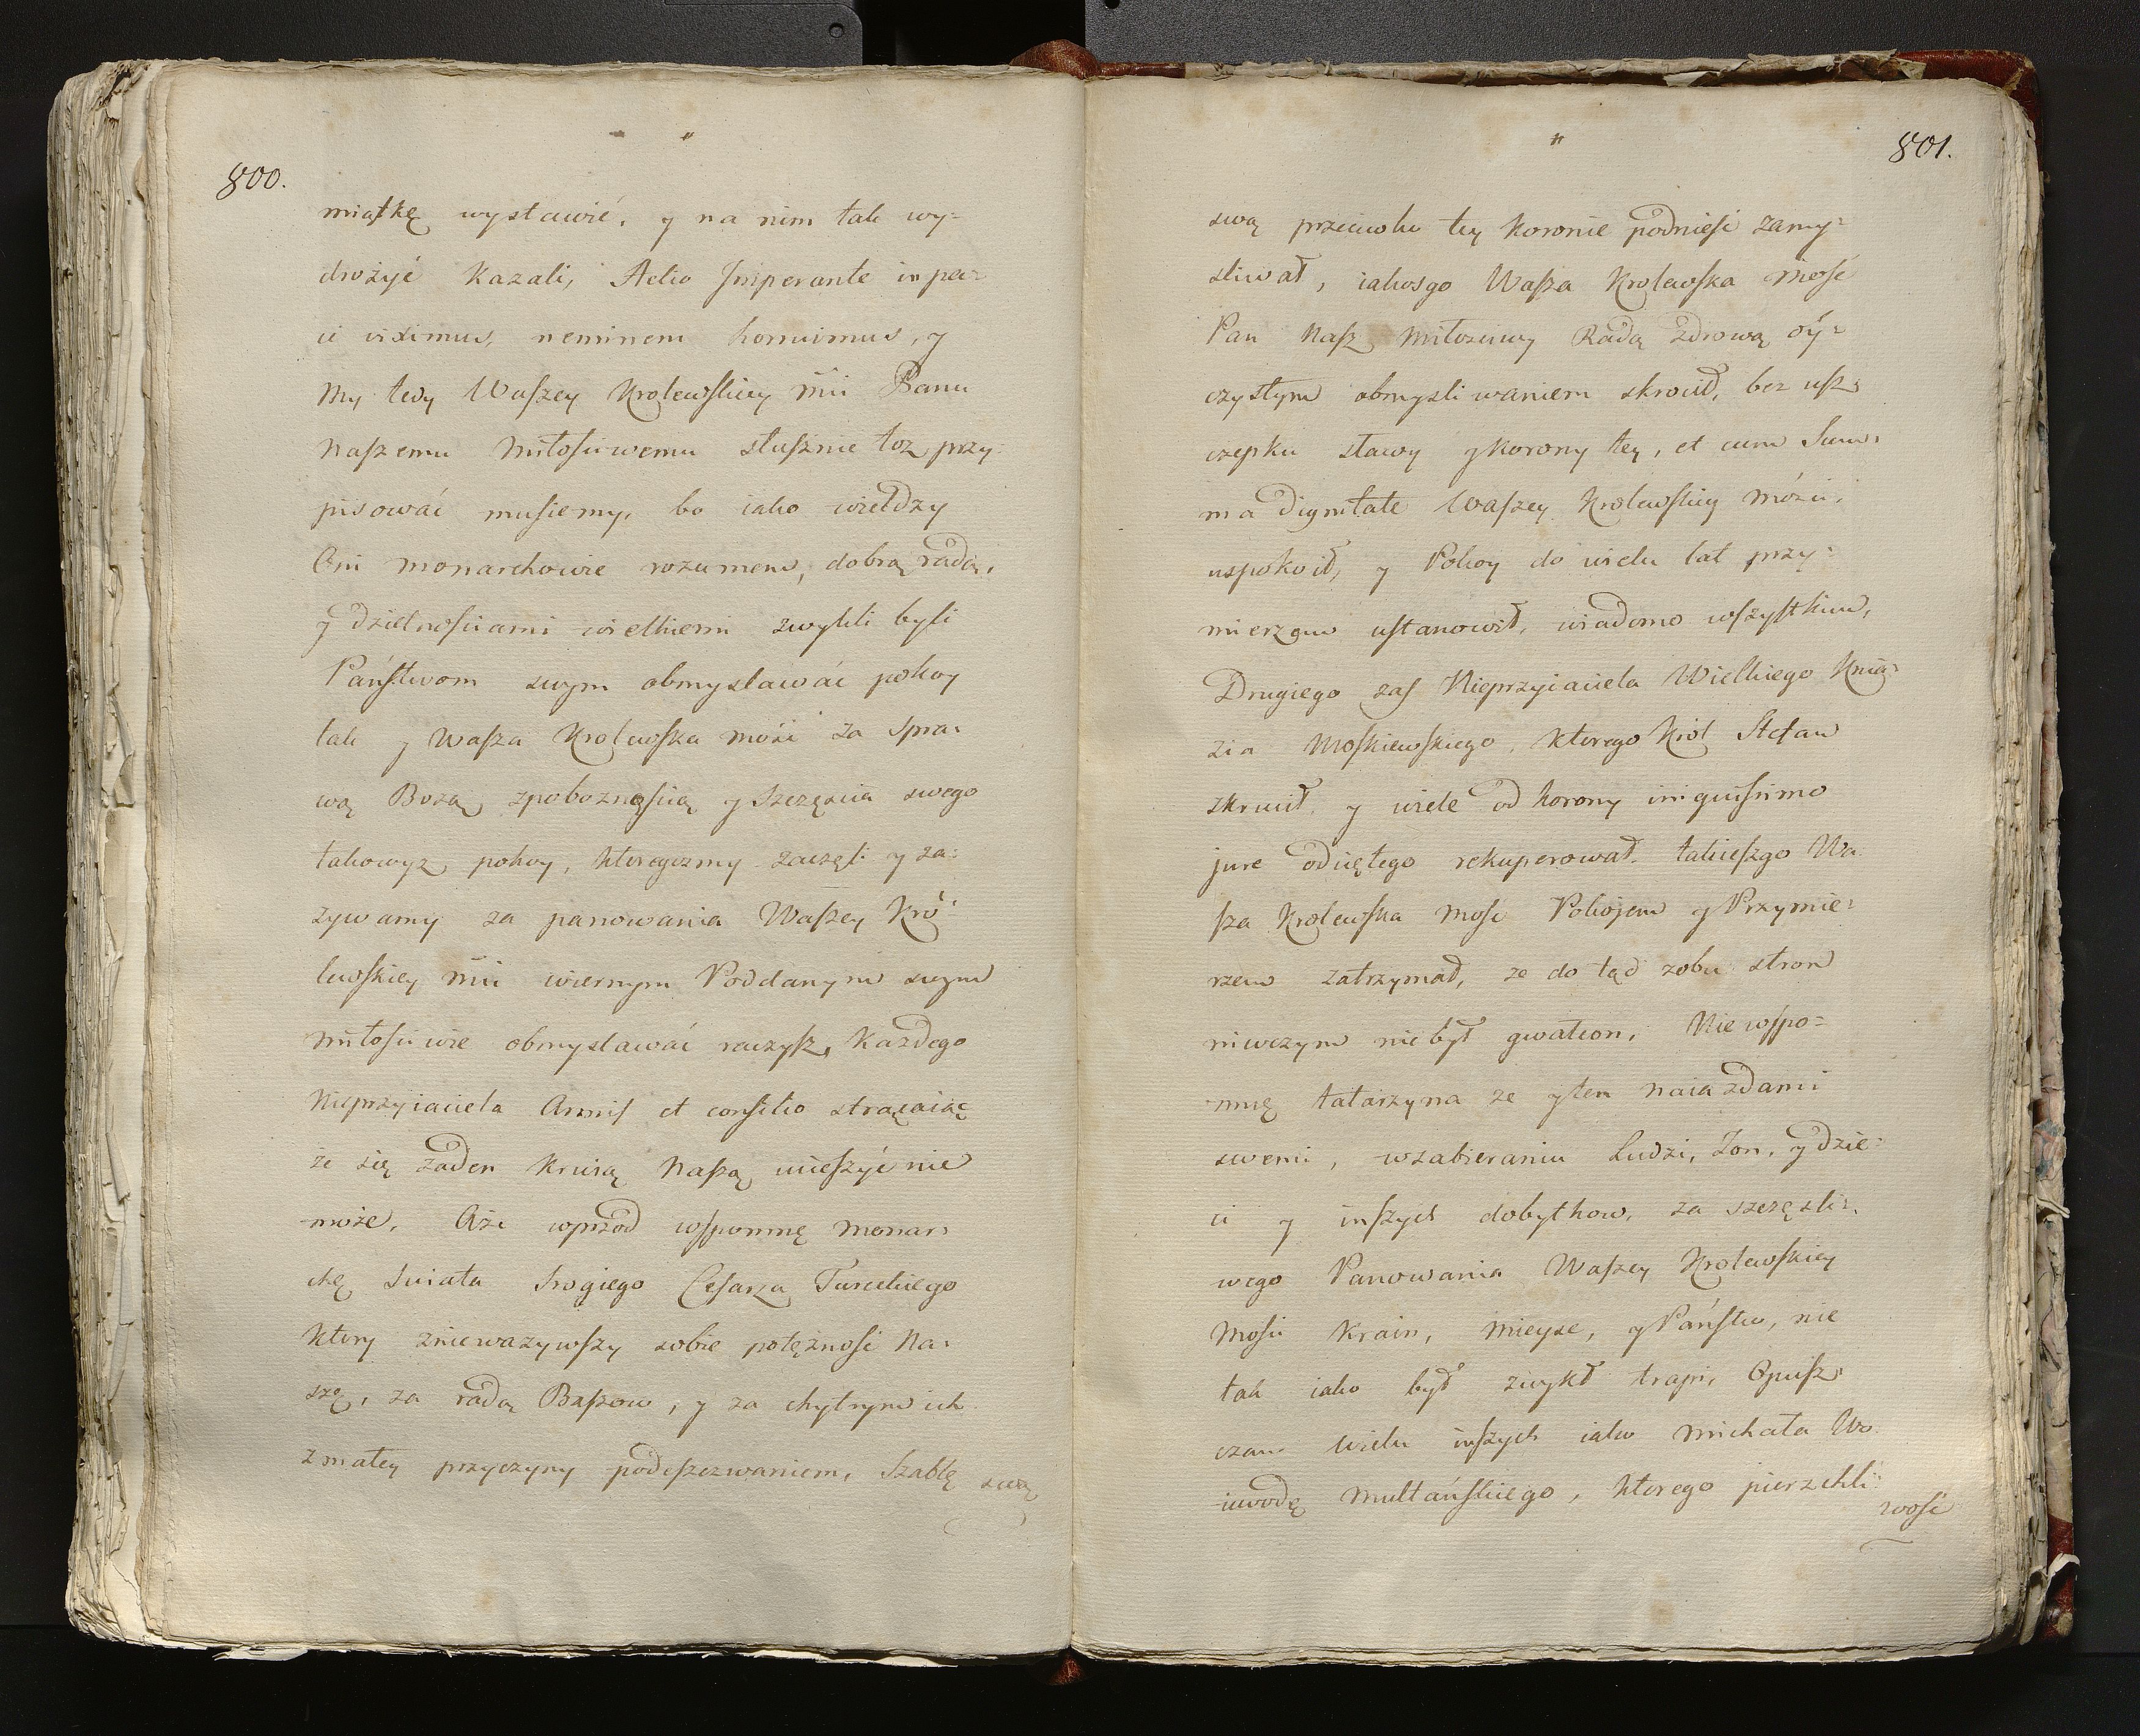 800.
miaſtkę wystawić, y na nim tak wy=
drożyć Kazali, Aelio Jmperante in pa=
ci viximus, neminem horruimus, y
My tedy Waſzey Krolewſkiey Mci Panu
Naſzemu Miłoſciwemu słuſznie toż przy=
pisować muſiemy, bo iako wieldzy
Oni Monarchowie rozumem, dobrą radą,
y dzielnoſciami wielkiemi zwykli byli
Pańſtwom swym obmyslawać pokoy
tak y Waſza Krolewſka Mość za spra=
wą Bozą zpoboznoſcią y Szczęscia swego
takowyz pokoy, ktoregozmy zaczęli y za=
zywamy za panowania Waſzey Kró=
lewſkiey Mci wiernym Poddanym swym
Miłoſciwie obmyslawać raczyſz, Kazdego
Nieprzyiaciela Armiſ et conſilio strącaiąc
że się żaden Krwią Naſzą cieſzyć nie
może. Aże wprzod wſpomnę Monar=
chę Swiata Srogiego Ceſarza Tureckiego
Ktory zniewazywſzy sobie potężnoſc Na=
szę, za radą Baſzow, y za chytrym ich
z małey przyczyny podeſzczwaniem, Szablę
swą
801.
swą przeciwko tey Koronie podnieſć zamy=
sliwał, iakosgo Waſza Krolewſka Mość
Pan Naſz Miłosciwy Radą zdrową Oy=
czystym obmysliwaniem skrocił, bez uſz=
czepku sławy y Korony tey, et cum Sum=
ma dignitate Waſzey Krolewſkiey Mósci,
uspokoił, y Pokoy do wielu lat przy=
mierzem uſtanowił, wiadomo wſzyſtkim,
Drugiego zaſ Nieprzyiaciela Wielkiego Knia=
zia Moſkiewſkiego, Ktorego Król Stefan
skrucił, y wiele od Korony iniquiſsimo
jure odciętego rekuperował, takieſzgo Wa=
ſza Krolewſka Moſc Pokojem y Przymie=
rzem zatrzymał, ze do tąd zobu stron
niwczym niebył gwałcon, Niewſpo=
mnę tatarzyna ze y ten naiazdami
swemi, wzabieraniu Ludzi, Zon, y dzie=
ci y inſzych dobytkow, za szczęsli=
wego Panowania Waſzey Krolewſkiey
Moſci Krain, Mieysc, y Pańſtw, nie
tak iako był zwykł trapi, Opuſz=
czam wielu inſzych iako Michała Wo=
iewodę Multańſkiego, Ktorego pierzchli=
woſć